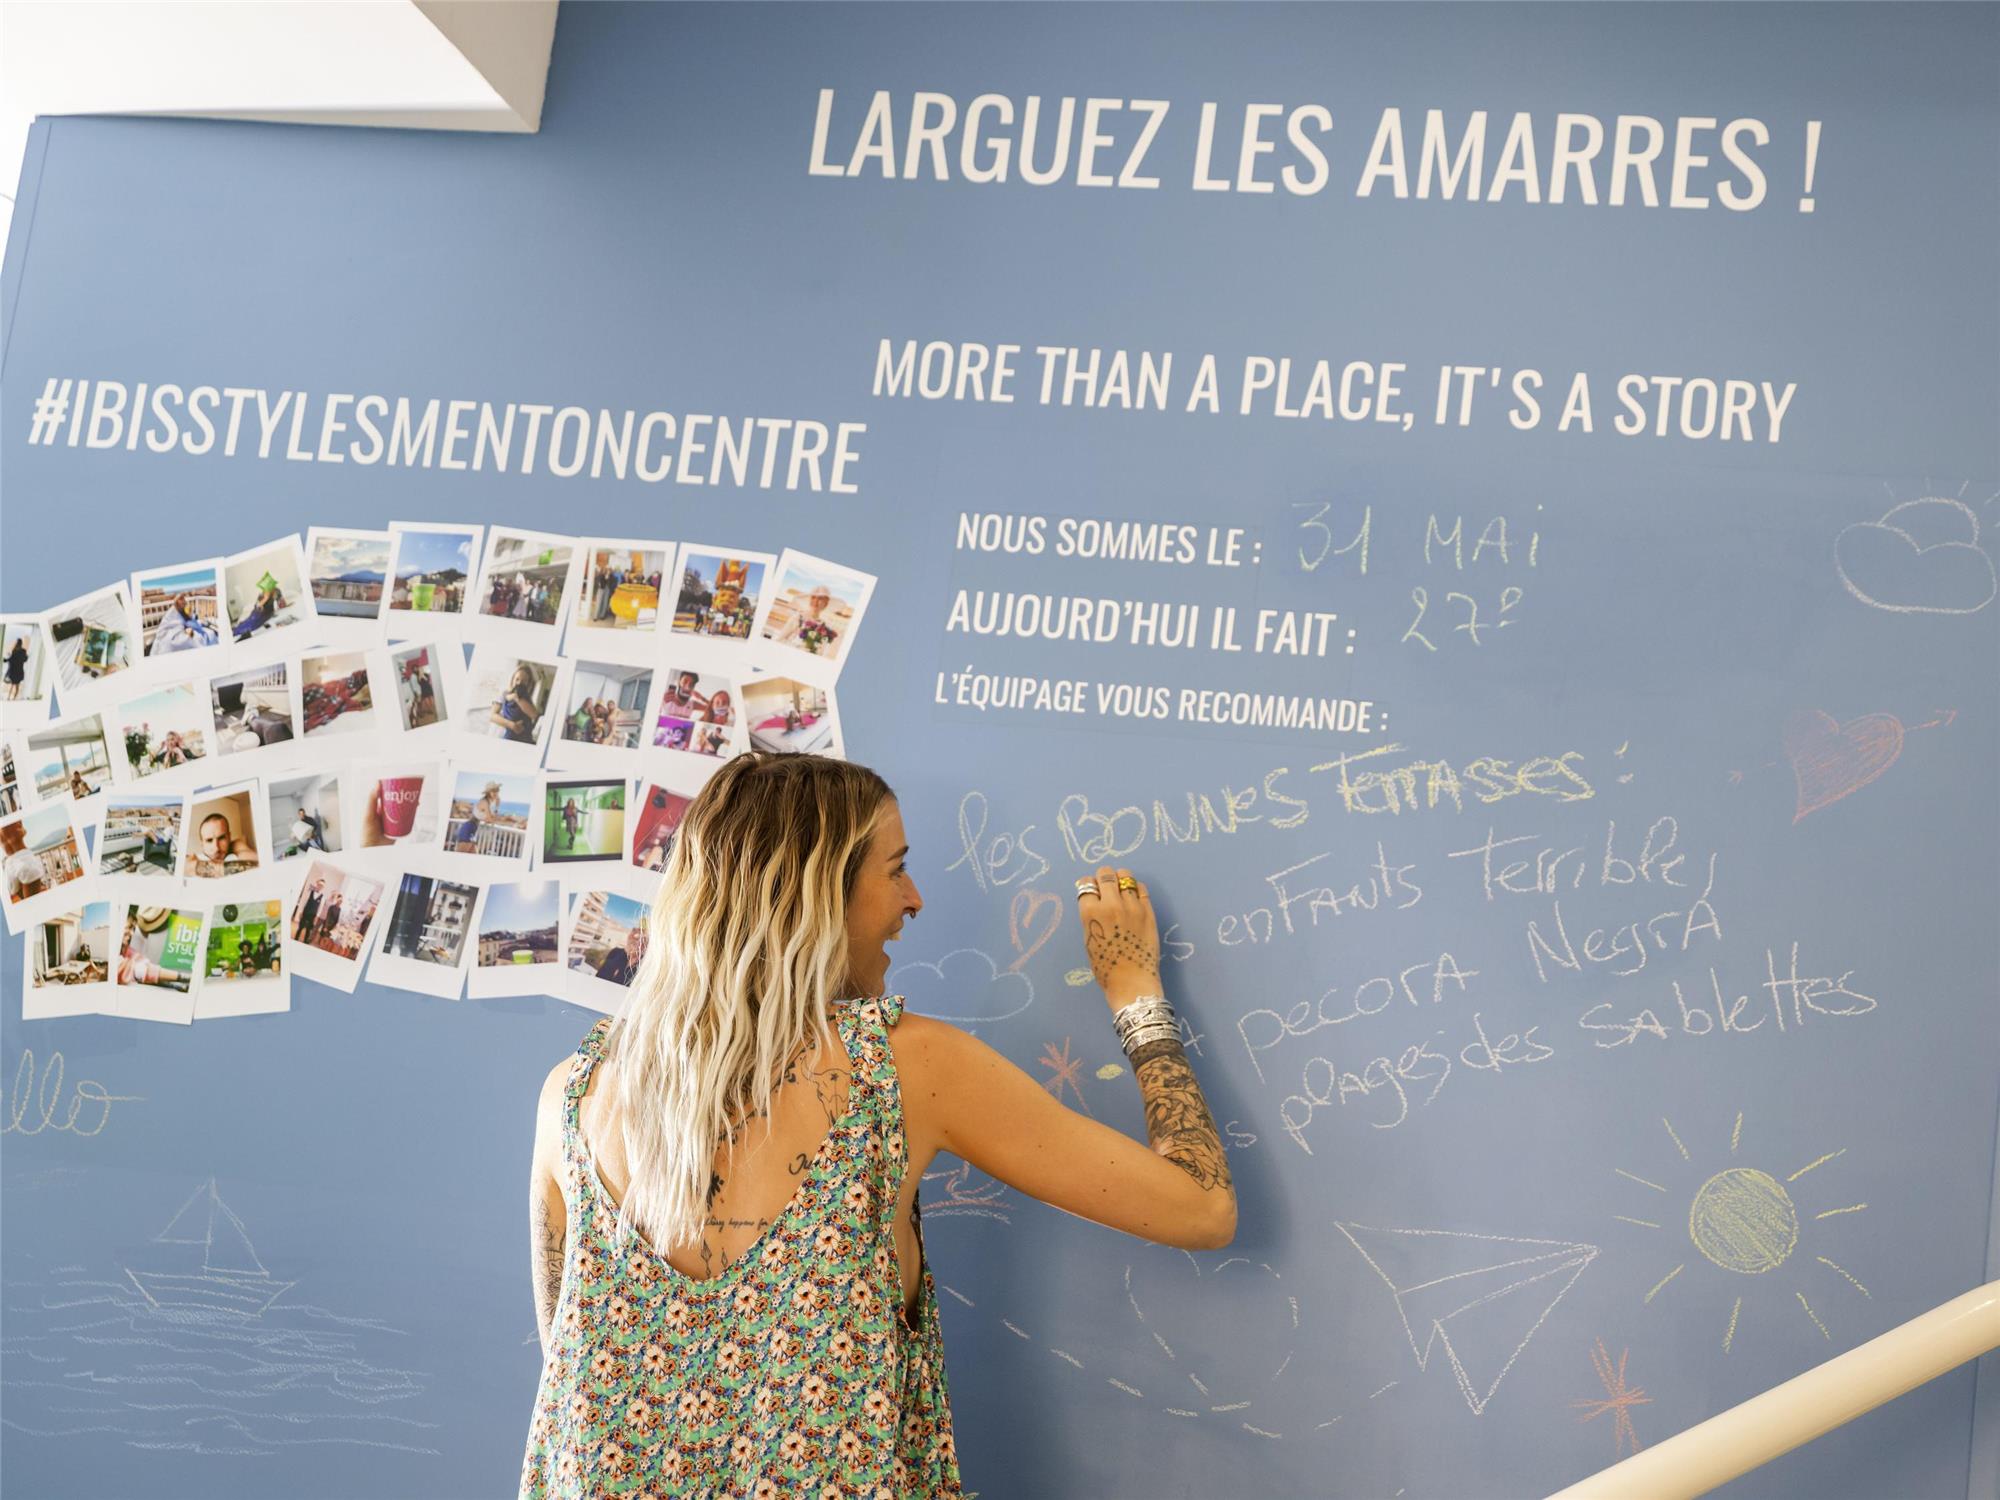 LARGUEZ LES AMARRES !
MORE THAN A PLACE, IT'S A STORY
#IBISSTYLESMENTONCENTRE
NOUS SOMMES LE : 31 MAi
AUJOURD'HUI IL FAIT : 27º
L'ÉQUIPAGE VOUS RECOMMANDE :
les BONNES TerrASSES :
enFAnts Terrible,
pecorA NegrA
plages des SAblettes
enjoy
ibis
llo